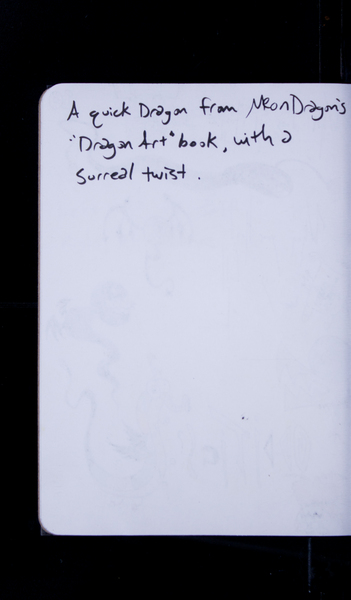 A quick Dragon from NeonDragon's
"Dragon Art" book, with a
Surreal twist.